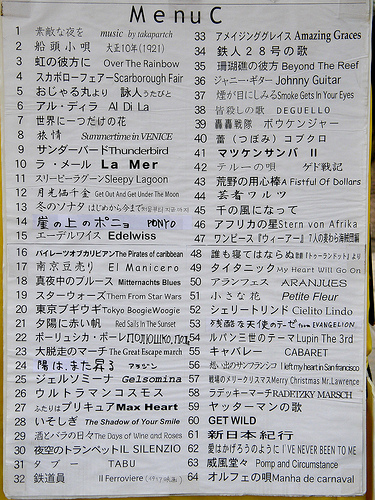 Menu C
1 素敵な夜を music by takapartch
2 船頭小唄 大正10年(1921)
3 虹の彼方に Over The Rainbow
4 スカボローフェアーScarborough Fair
5 おじゃる丸より 詠人うたびと
6 アル・ディラ Al Di La
7 世界に一つだけの花
8 旅情 Summertime in VENICE
9 サンダーバードThunderbird
10 ラ・メール La Mer
11 スリーピーラグーンSleepy Lagoon
12 月光価千金 Get Out And Get Under The Moon
13 冬のソナタ はじめから今まで
14 崖の上のポニョ PONYO
15 エーデルワイス Edelweiss
16 パイレーツオブカリビアンThe Pirates of caribbean
17 南京豆売り El Manicero
18 真夜中のブルース Mitternachts Blues
19 スターウォーズThem From Star Wars
20 東京ブギウギTokyo BoogieWoogie
21 夕陽に赤い帆 Red Sails In The Sunset
22 ポーリュシカ・ポーレ
23 大脱走のマーチThe Great Escape march
24 陽は、また昇る アラジン
25 ジェルソミーナ Gelsomina
26 ウルトラマンコスモス
27 ふたりはプリキュアMax Heart
28 いそしぎ The Shadow of Your Smile
29 酒とバラの日々The Days of Wine and Roses
30 夜空のトランペットIL SILENZIO
31 タブー TABU
32 鉄道員 Il Ferroviere (イタリア映画)
33 アメイジンググレイス Amazing Graces
34 鉄人28号の歌
35 珊瑚礁の彼方 Beyond The Reef
36 ジャニー・ギター Johnny Guitar
37 煙が目にしみるSmoke Gets In Your Eyes
38 皆殺しの歌 DEGUELLO
39 轟轟戦隊 ボウケンジャー
40 蕾(つぼみ)コブクロ
41 マツケンサンバ II
42 テルーの唄 ゲド戦記
43 荒野の用心棒A Fistful Of Dollars
44 芸者ワルツ
45 千の風になって
46 アフリカの星Stern von Afrika
47 ワンピース『ウィーアー』7人の麦わら海賊団編
48 誰も寝てはならぬ 歌劇「トゥーランドット」より
49 タイタニック My Heart Will Go On
50 アランフェス ARANJUES
51 小さな花 Petite Fleur
52 シェリートリンド Cielito Lindo
53 残酷な天使のテーゼ from EVANGELION
54 ルパン三世のテーマLupin The 3rd
55 キャバレー CABARET
56 想い出のサンフランシスコ I left my heart in San francisco
57 戦場のメリークリスマスMerry Christmas Mr.Lawrence
58 ラデッキーマーチRADETZKY MARSCH
59 ヤッターマンの歌
60 GET WILD
61 新日本紀行
62 愛はかげろうのように I'VE NEVER BEEN TO ME
63 威風堂々 Pomp and Circumstance
64 オルフェの唄Manha de carnaval